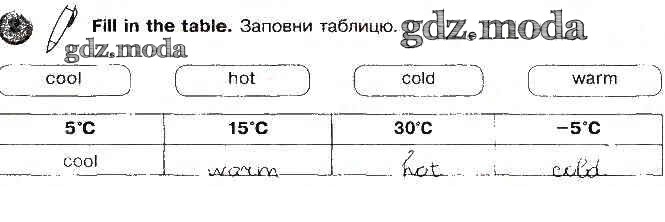 Fill in the table. Заповни таблицю. gdz.moda
gdz.moda
cool hot cold warm
5°C 15°C 30°C −5°C
cool warm hot cold